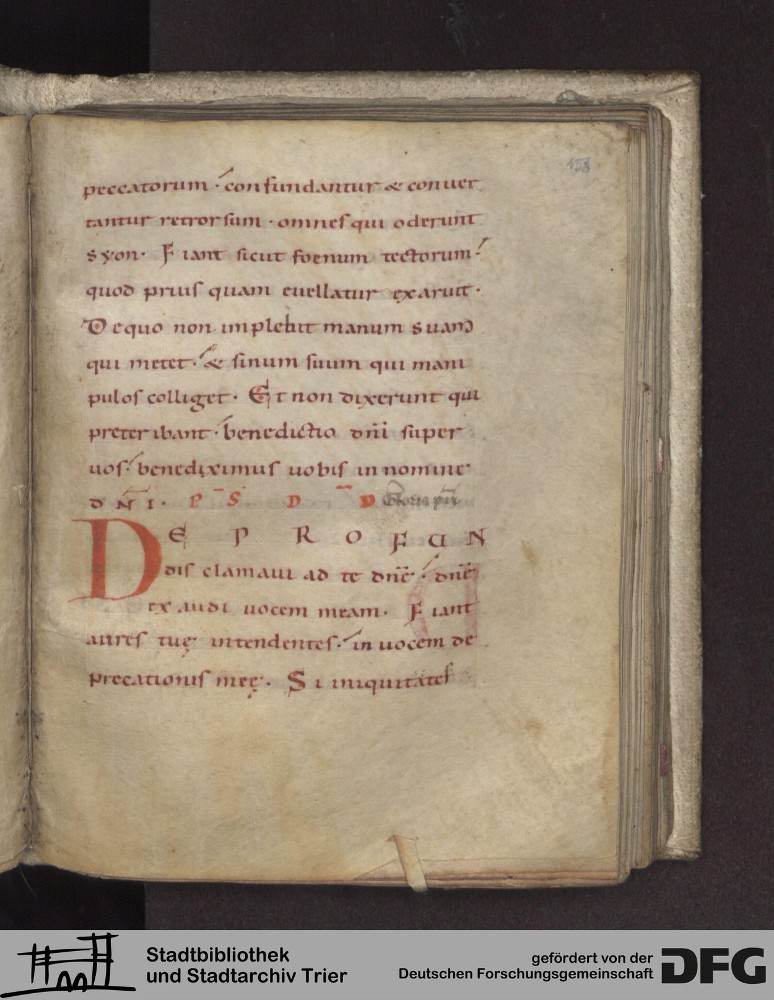 158
peccatorum · confundantur & conuer
tantur retrorsum · omnes qui oderunt
syon · Fiant sicut foenum tectorum
quod prius quam euellatur exaruit ·
De quo non impleuit manum suam
qui metet · & sinum suum qui mani
pulos colliget · Et non dixerunt qui
preteribant · benedictio dn̄i super
uos · benediximus uobis in nomine
dN̄I · P S D D Gloria
DE PROFUN
dis clamaui ad te dn̄e · dn̄e
exaudi uocem meam · Fiant
aures tuę intendentes · in uocem de
precationis meę · Si iniquitates
Stadtbibliothek
und Stadtarchiv Trier
gefördert von der
Deutschen Forschungsgemeinschaft
DFG